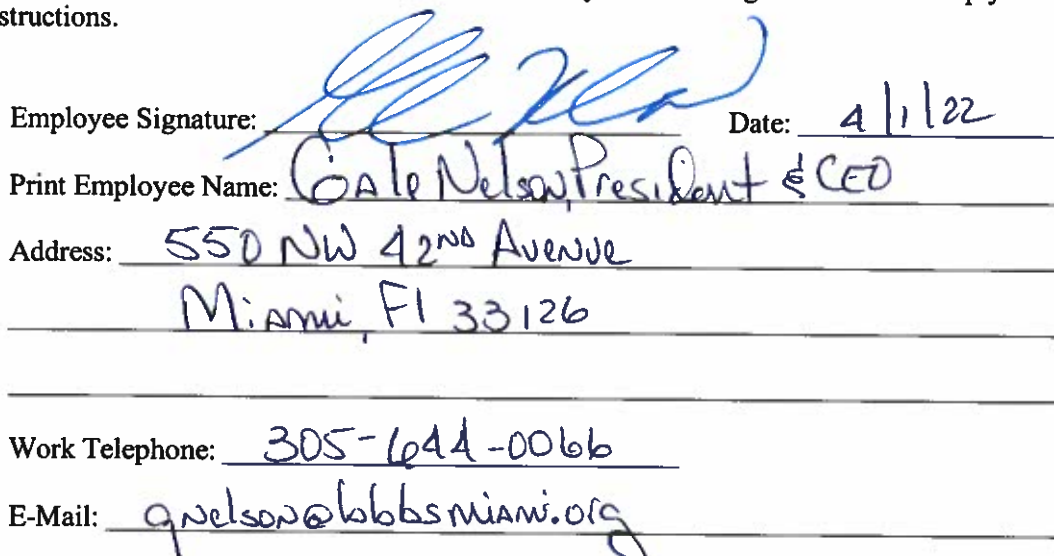 structions.
Employee Signature: Date: 4/1/22
Print Employee Name: Gale Nelson, President & CEO
Address: 550 NW 42ND Avenue
Miami, Fl 33126
Work Telephone: 305-644-0066
E-Mail: gnelson@bbbsmiami.org